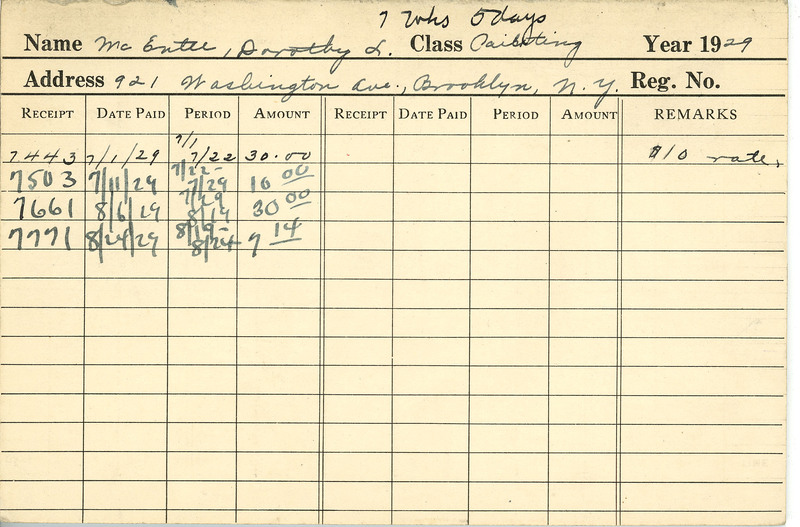 7 wks 5 days
Name McEntee, Dorothy L. Class Painting Year 1929
Address 921 Washington Ave., Brooklyn, N.Y. Reg. No.
RECEIPT DATE PAID PERIOD AMOUNT RECEIPT DATE PAID PERIOD AMOUNT REMARKS
7/1
7443 7/1/29 7/22 30.00 $10 rate.
7/22-
7503 7/11/29 7/29 10 00
7/29
7661 8/6/29 8/19 30 00
8/19-
7771 8/24/29 8/24 7 14